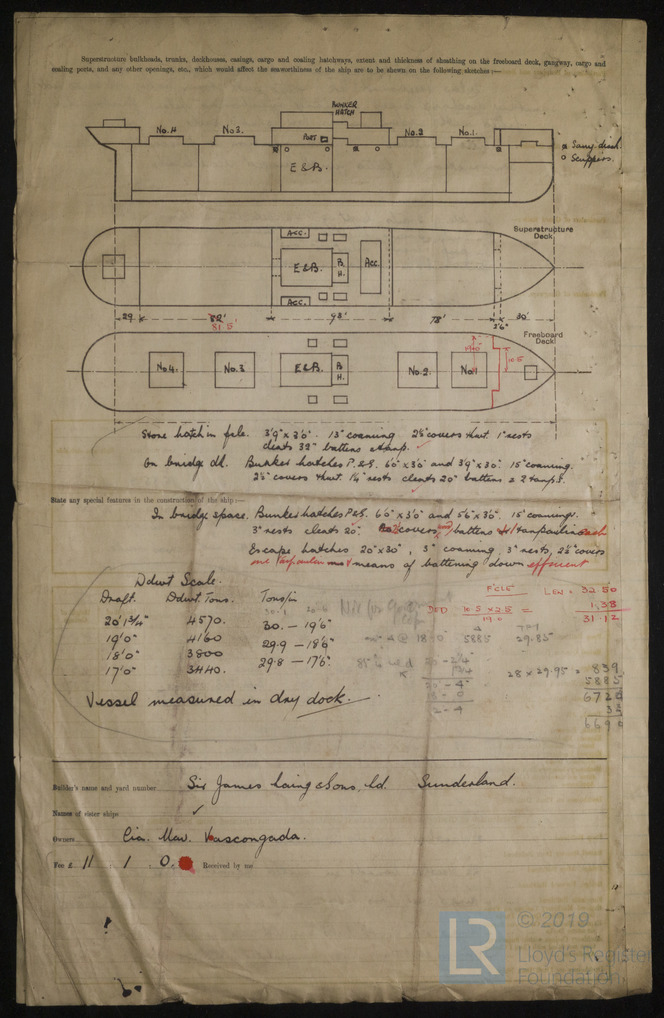 Superstructure bulkheads, trunks, deckhouses, casings, cargo and coaling hatchways, extent and thickness of sheathing on the freeboard deck, gangway, cargo and
coaling ports, and any other openings, etc., which would affect the seaworthiness of the ship are to be shown on the following sketches:—
BUNKER
HATCH
No.4. No3. PORT No.2 No.1.
E & B.
Sany. disch.
Scuppers.
Superstructure
Deck.
Acc.
E & B. B. H. Acc.
Acc.
29 82' 98' 78' 30'
81.5 2'6"
Freeboard
Deck
19.0" 10.5
No.4. No.3 E & B. B. H. No.2. No1
Store hatch in fcle. 3'9" x 3'0". 13" coaming 2½" covers thwt. 1" rests
cleats 32" battens & tarp.
On bridge dk. Bunker hatches P. & S. 6'0" x 3'0" and 3'9" x 3'0". 15" coaming.
2½" covers thwt. 1¼" rests cleats 20" battens & 2 tarps.
State any special features in the construction of the ship:—
In bridge space. Bunker hatches P & S. 6'0" x 3'0" and 5'6" x 3'0". 15" coamings.
3" rests cleats 20". covers, battens tarpaulins each
Escape hatches 20" x 30", 3" coaming, 3" rests, 2½" covers
one tarpaulin means of battening down efficient
Ddwt Scale.
Draft. Ddwt. Tons. Tons/in
20' 1¾" 4570. 30. — 19'6"
19'0" 4160 29.9 — 18'6"
18'0" 3800 29.8 — 17'6".
17'0" 3440.
FCLE LEN = 32.50
DED 10.5 x 2.5 = 1.38
19.0 31.12
@ 18'0" 5885 29.85
28 x 29.95 = 839
5885
6724
6696
Vessel measured in dry dock.
Builder's name and yard number Sir James Laing & Sons, Ld. Sunderland.
Names of sister ships
Owners Cia. Nav. Vascongada.
Fee £ 11 : 1 : 0. Received by me
LR
© 2019
Lloyd's Register
Foundation